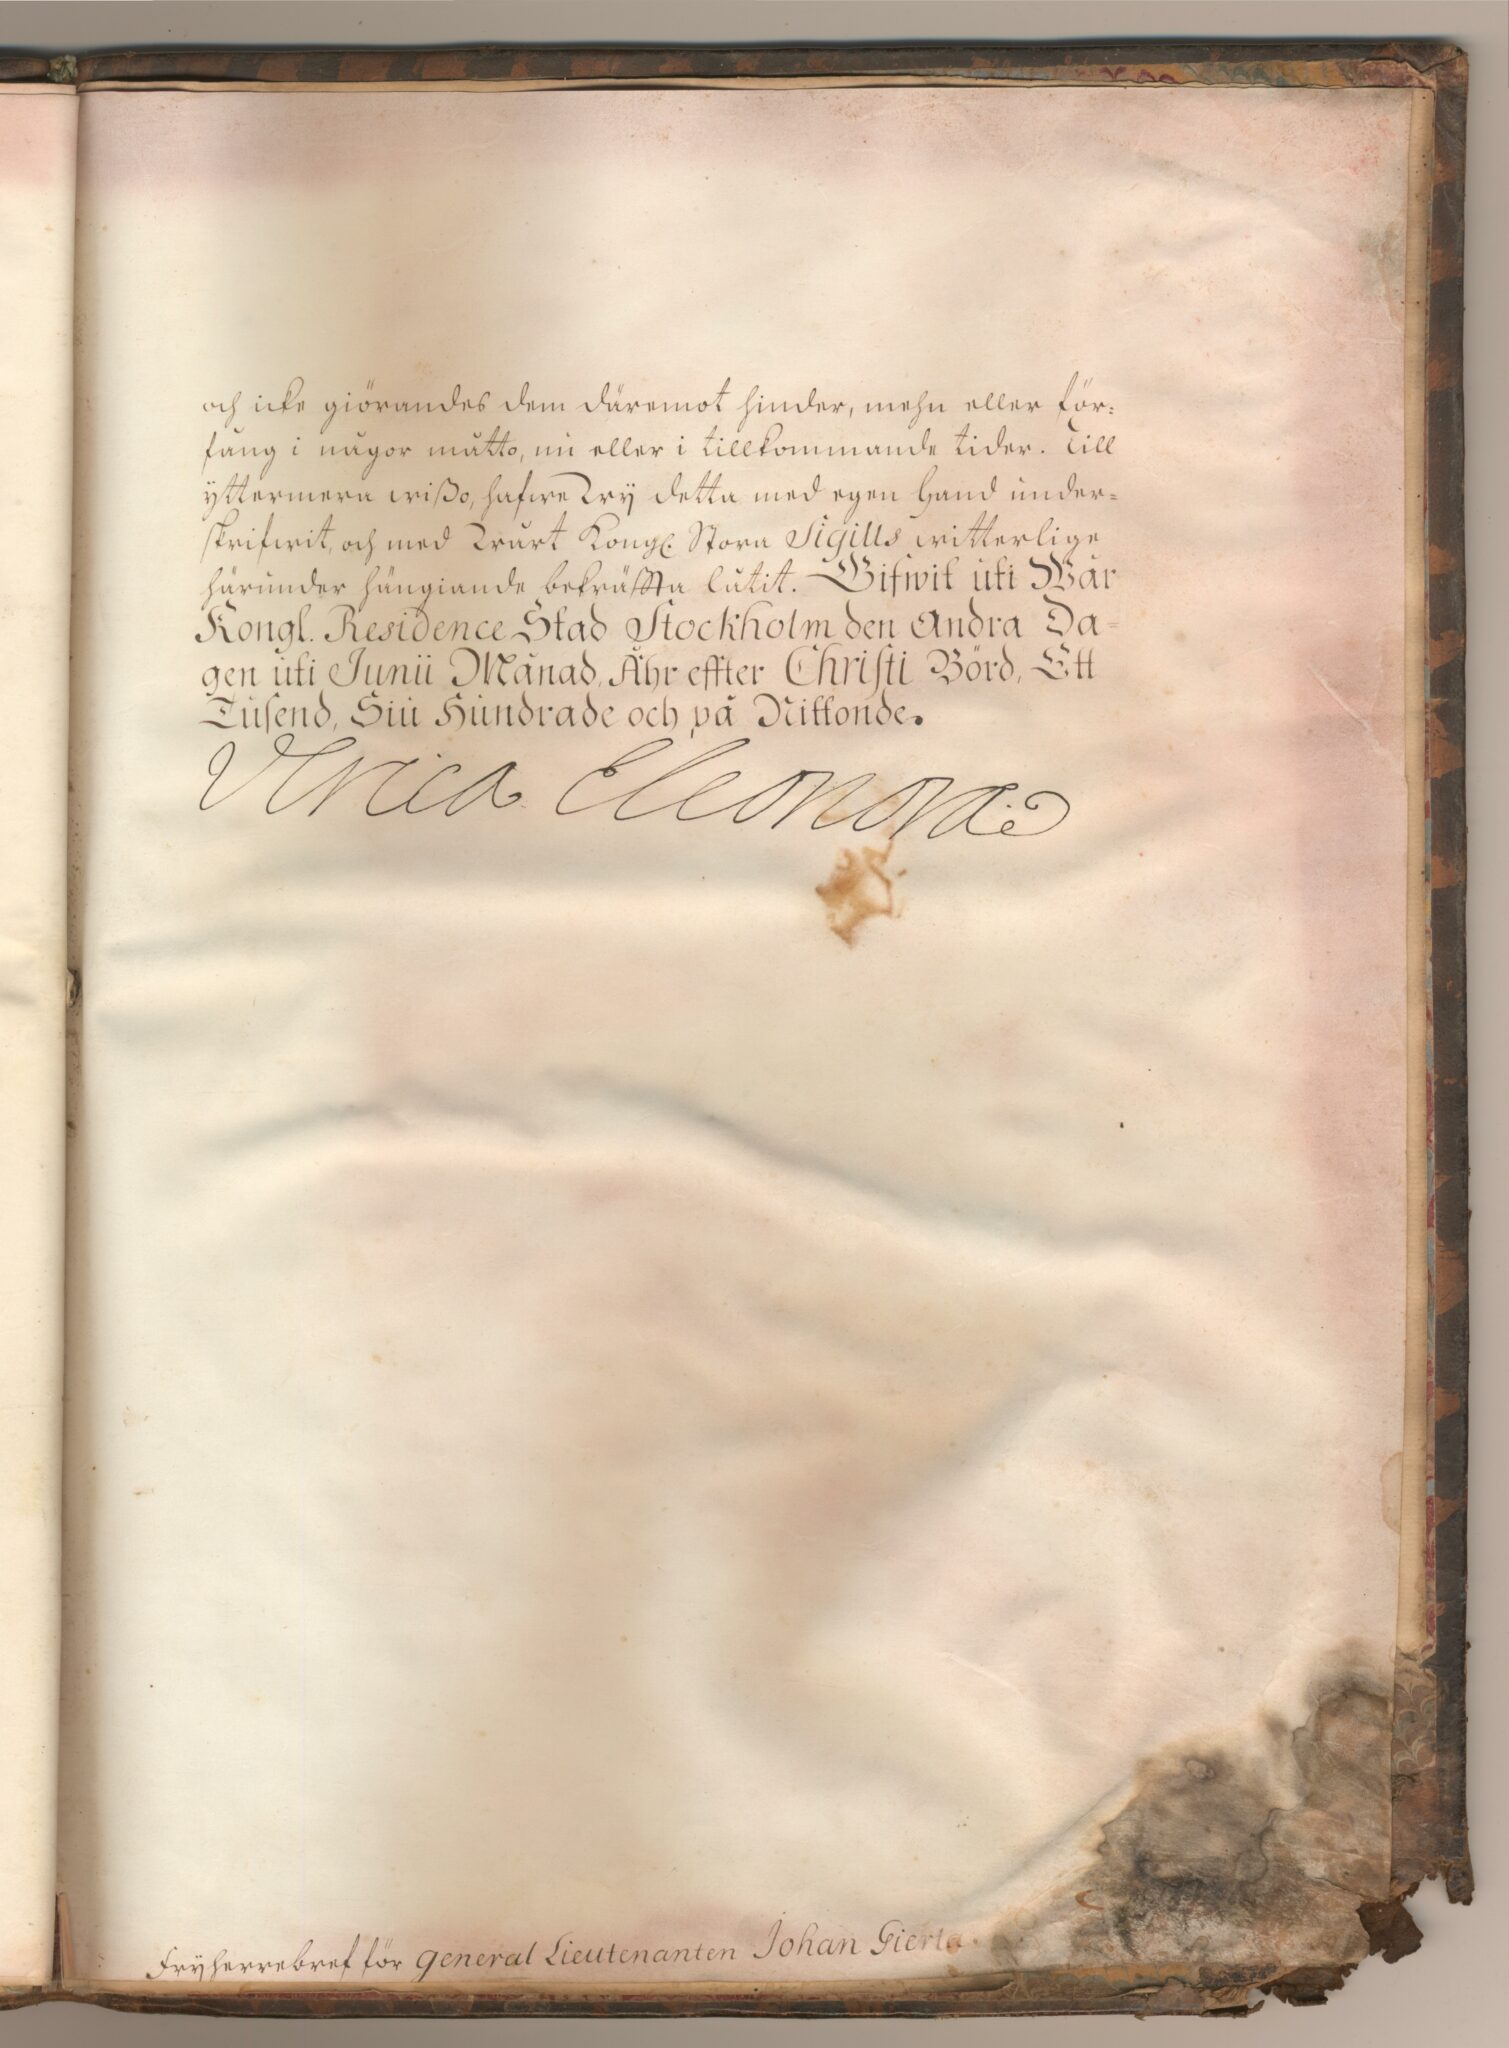 och icke giörandes dem däremot hinder, mehn eller för:
fång i någor måtto, nu eller i tillkommande tider. Till
yttermera wißo, hafwe Wy detta med egen Hand under-
skrifwit, och med Wårt Kongl. Stora Sigills witterlige
härunder hängiande bekräffta låtit. Gifwit uti Wår
Kongl. Residence Stad Stockholm den Andra Da-
gen uti Junii Månad, Åhr effter Christi Börd, Ett
Tusend, Siu Hundrade och på Nittonde.
Ulrica Eleonora
Fryherrebref för General Lieutenanten Johan Gierta.